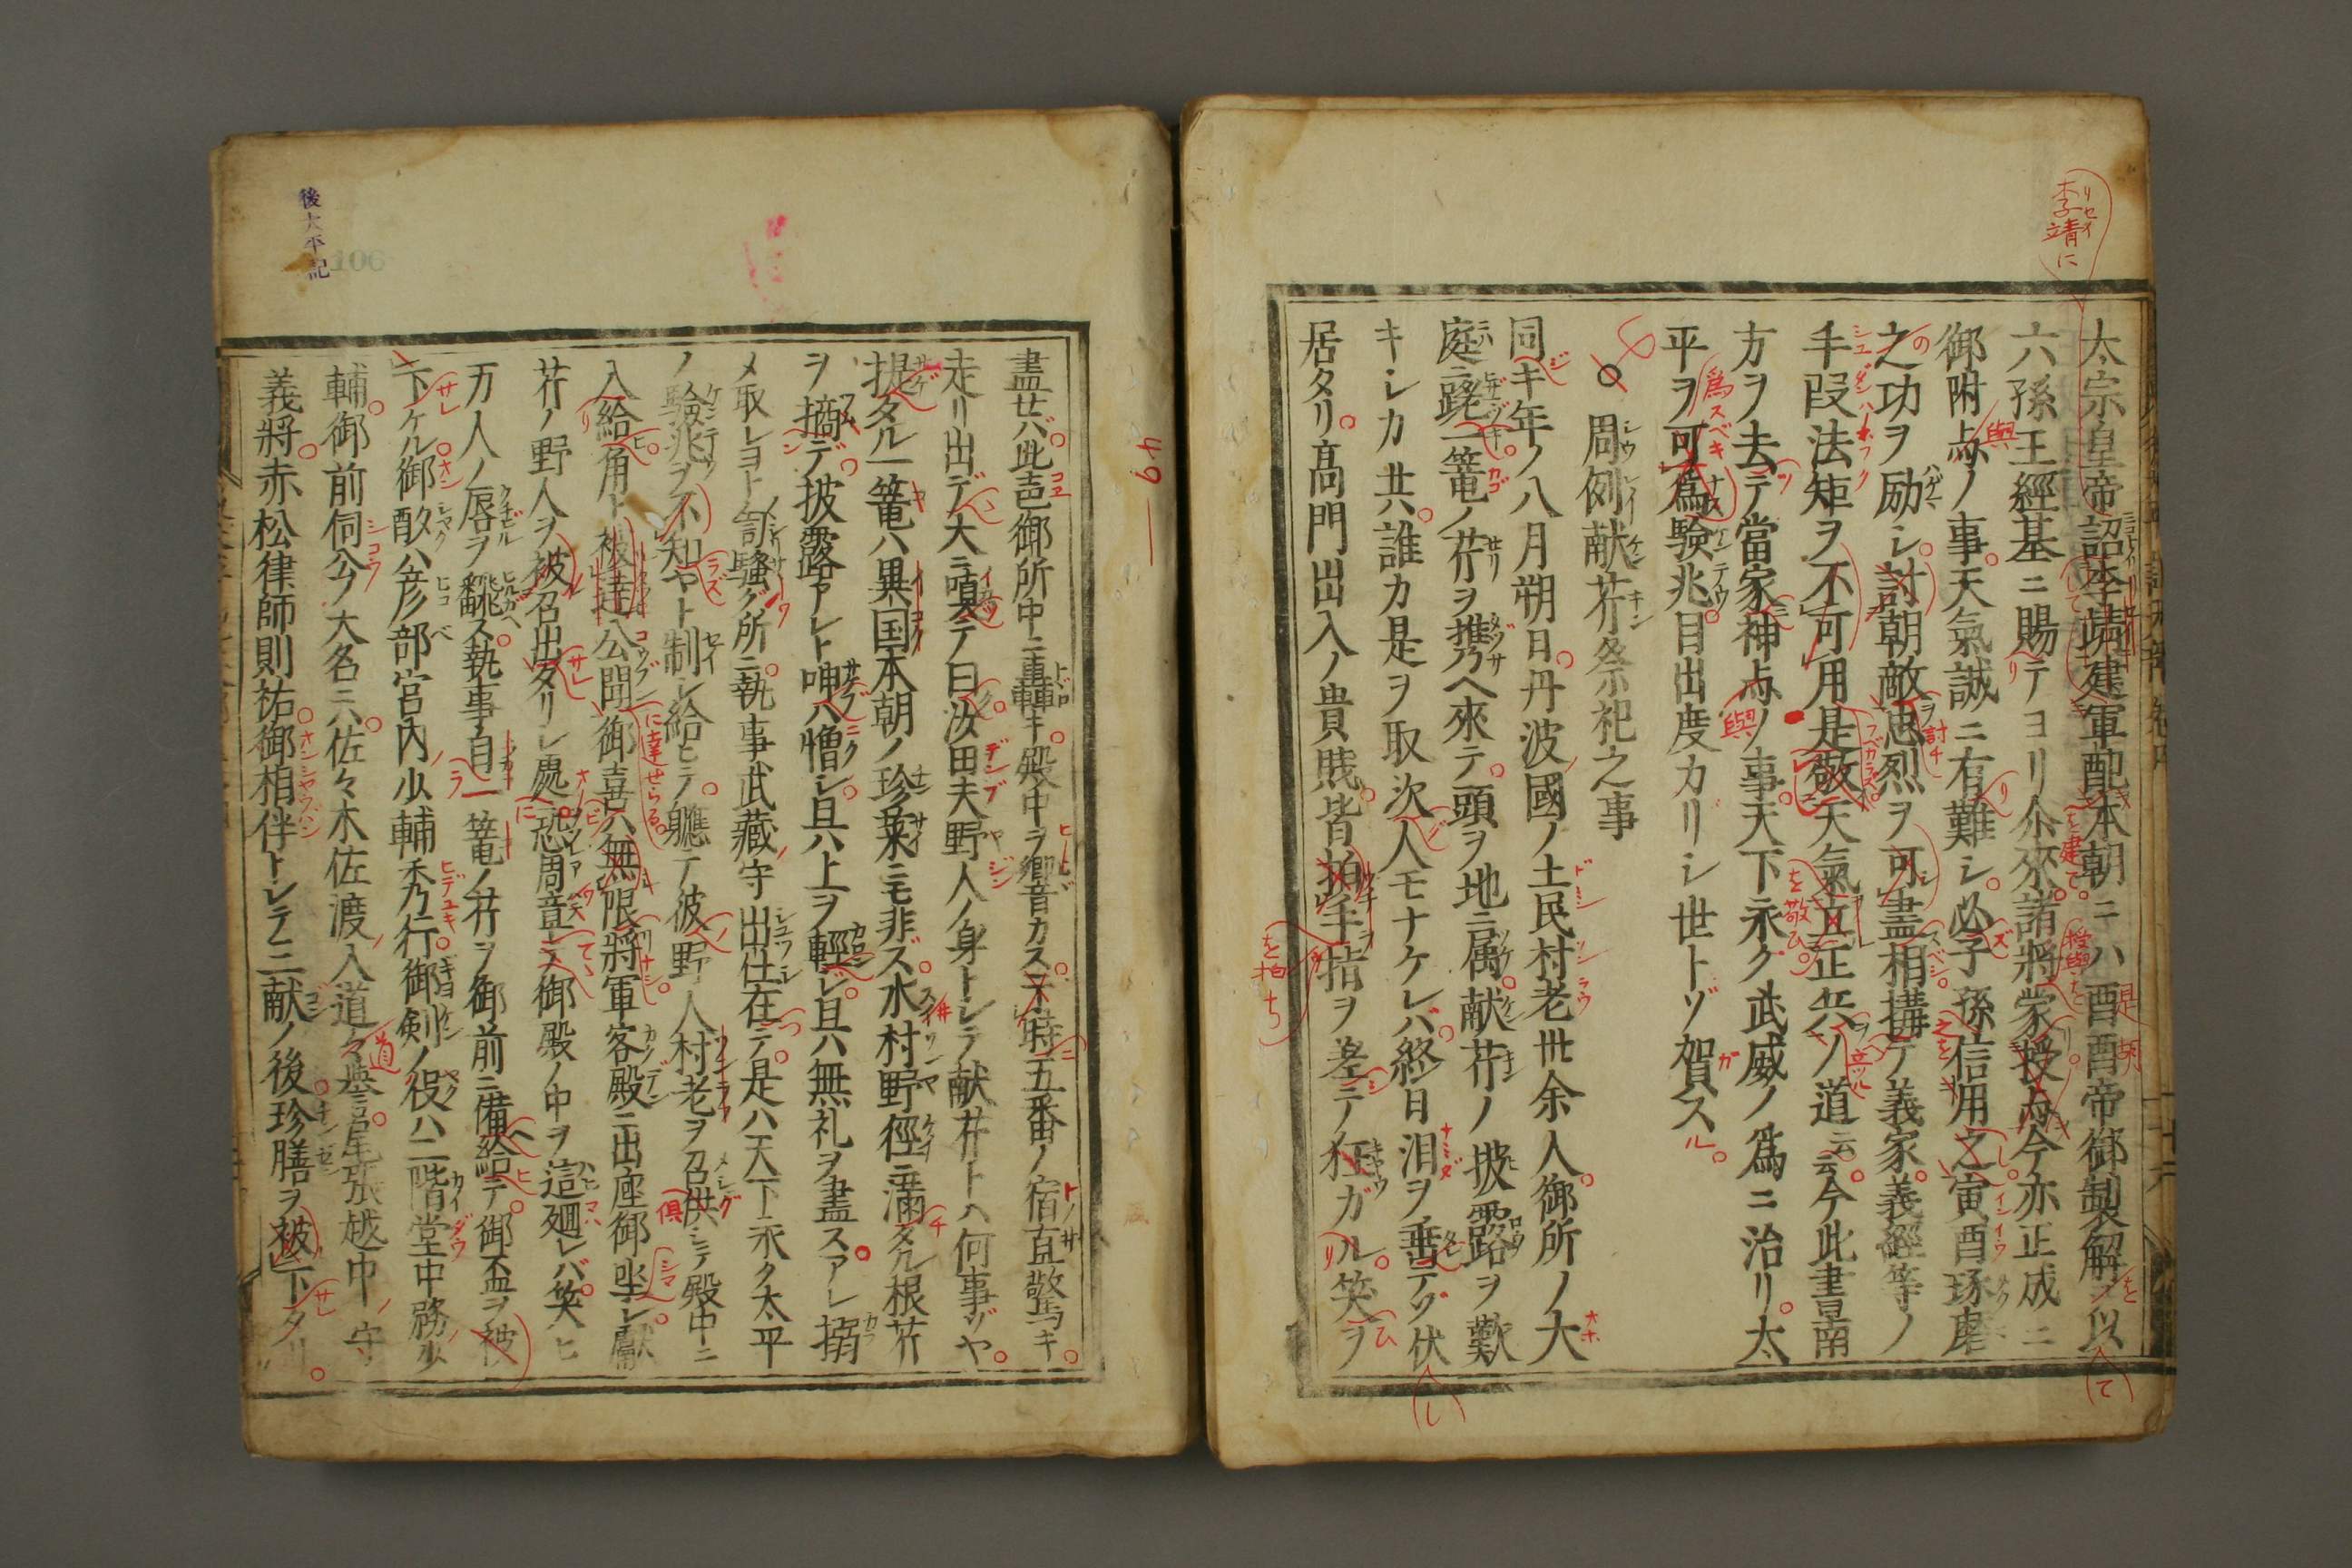 李靖に
リセイ
太宗皇帝詔李靖建軍配本朝ニハ酉酉帝御製解ヲ以
六孫王經基ニ賜テヨリ尒來諸將蒙授与今亦正成ニ
御附与ノ事天氣誠ニ有難シ必子孫信用之寅酉琢磨
之功ヲ励シ討朝敵忠烈ヲ可盡相搆テ義家義經等ノ
手段法矩ヲ不可用是敬天氣立正兵ノ道云云今此書昜南
方ヲ去テ當家神与ノ事天下永ク武威ノ爲ニ治リ太
平ヲ可爲験兆目出度カリシ世トゾ賀ス
周例献芹祭祀之事
同キ年ノ八月朔日丹波國ノ土民村老丗余人御所ノ大
庭ニ跪一篭ノ芹ヲ携ヘ來テ頭ヲ地ニ属献芹ノ披露ヲ歎
キシカ共誰カ是ヲ取次人モナケレバ終日泪ヲ垂テゾ伏
居タリ髙門出入ノ貴賎皆拍手指ヲ差テ狂ガル笑ヲ
49
盡せバ此声御所中ニ轟キ殿中ヲ響カス不時五番ノ宿直驚キ
走リ出デ大ニ嗔テ曰汝田夫野人ノ身トシテ献芹トハ何事ゾヤ
提タル一篭ハ異国本朝ノ珍菜ニモ非ズ水村野徑ニ滿タル根芹
ヲ摘デ披露アレト呻ハ憎シ且ハ上ヲ輕シ且ハ無礼ヲ盡スアレ搦
メ取レヨト訇騒グ所ニ執事武藏守出仕在テ是ハ天下永ク太平
ノ験兆ヲ不知ヤト制シ給ヒテ軈テ彼野人村老ヲ召供シテ殿中ニ
入給角ト被達公聞御喜ハ無限將軍客殿ニ出座御坐レ獻
芹ノ野人ヲ被召出タリシ處恐周章テ御殿ノ中ヲ這廻レバ笑ヒ
万人ノ唇ヲ飜ス執事自一篭ノ芹ヲ御前ニ備給テ御盃ヲ被
下ケル御酌ハ彦部宮内少輔秀行御剣ノ役ハ二階堂中務少
輔御前伺公ノ大名ニハ佐々木佐渡入道々譽尾張越中守
義將赤松律師則祐御相伴トシテ三献ノ後珍膳ヲ被下タリ
後太平記
106